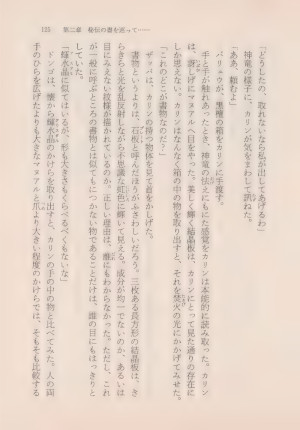 125　第二章　秘伝の書を巡って……
「どうしたの、取れないなら私が出してあげるわ」
神竜の様子に、カリンが気をまわして訊ねた。
「ああ、頼むよ」
バリュウが、黒檀の箱をカリンに手渡す。
手と手が触れあったとき、神竜の怯えにもにた感覚をカリンは本能的に読み取った。カリン
は、訝しげにマヌアルへ目をやった。美しく輝く結晶板は、カリンにとって見た通りの存在に
しか思えない。カリンはなんなく箱の中の物を取り出すと、それを焚火の光にかかげてみせた。
「これのどこが書物なのだ？」
ザッパは、カリンの持つ物体を見て首をかしげた。
書物というよりは、石板と呼んだほうがふさわしいだろう。三枚ある長方形の結晶板は、き
らきらと光を乱反射しながら不思議な虹色に輝いて見える。成分が均一でないのか、あるいは
目にみえない紋様が描かれているのか、正しい理由は、誰にもわからなかった。ただし、これ
が一般に呼ぶところの書物とは似てもにつかない物であることだけは、誰の目にもはっきりと
していた。
「輝水晶に似てはいるが、形も大きさもくらべるべくもないな」
ドンゴは、懐から輝水晶のかけらを取り出すと、カリンの手の中の物と比べてみた。人の両
手のひらを広げたよりも大きなマヌアルと爪より大きい程度のかけらでは、そもそも比較する